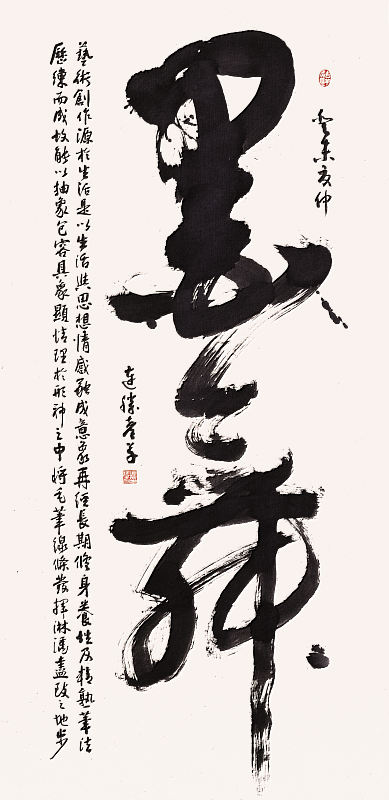 癸未夏仲
墨舞
連勝彥草
藝術創作源於生活是以生活與思想情感融成意象再經長期修身養性及精熟筆法
歷練而成故能以抽象包容具象顯情理於形神之中將毛筆線條發揮淋漓盡致之地步